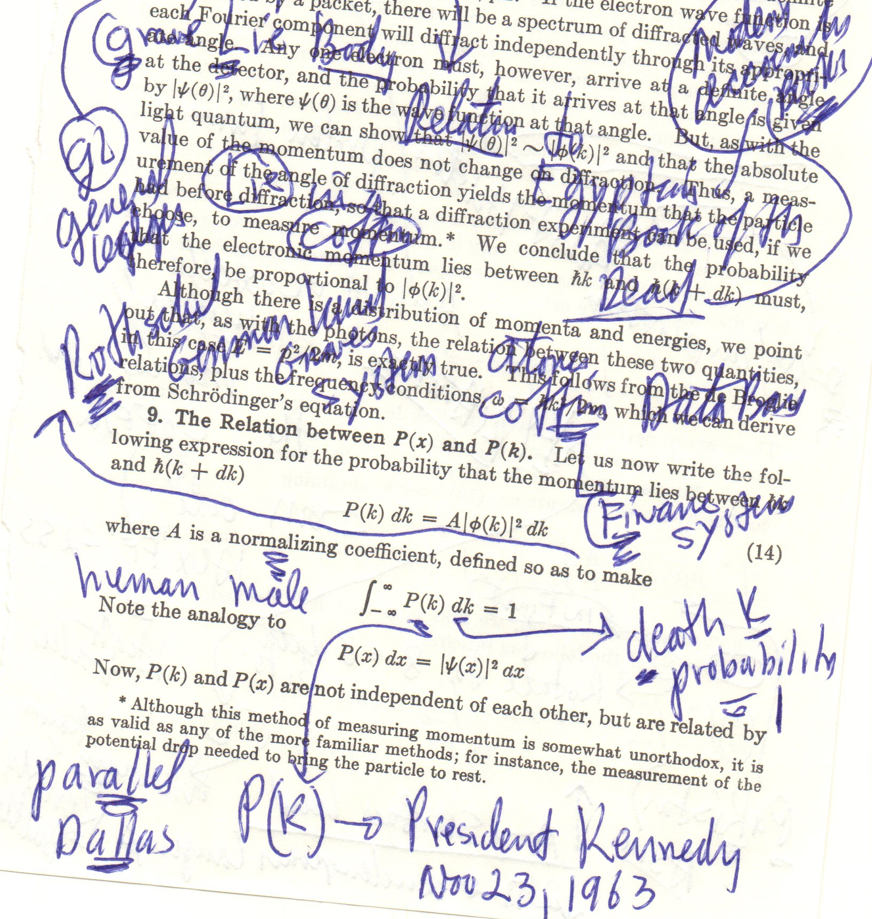 by a packet, there will be a spectrum of diffracted waves, and
each Fourier component will diffract independently through its appropri-
ate angle. Any one electron must, however, arrive at a definite angle
at the detector, and the probability that it arrives at that angle is given
by |ψ(θ)|², where ψ(θ) is the wave function at that angle. But, as with the
light quantum, we can show that |ψ(θ)|² ~ |ϕ(k)|² and that the absolute
value of the momentum does not change on diffraction. Thus, a meas-
urement of the angle of diffraction yields the momentum that the particle
had before diffraction, so that a diffraction experiment can be used, if we
choose, to measure momentum.* We conclude that the probability
that the electronic momentum lies between ħk and ħ(k + dk) must,
therefore, be proportional to |ϕ(k)|².
Although there is a distribution of momenta and energies, we point
out that, as with the photons, the relation between these two quantities,
in this case E = p²/2m, is exactly true. This follows from the de Broglie
relations, plus the frequency conditions, ω = ħk²/2m, which we can derive
from Schrödinger's equation.
9. The Relation between P(x) and P(k). Let us now write the fol-
lowing expression for the probability that the momentum lies between ħk
and ħ(k + dk)
P(k) dk = A|ϕ(k)|² dk
(14)
where A is a normalizing coefficient, defined so as to make
∫_{-∞}^{∞} P(k) dk = 1
Note the analogy to
P(x) dx = |ψ(x)|² dx
Now, P(k) and P(x) are not independent of each other, but are related by
* Although this method of measuring momentum is somewhat unorthodox, it is
as valid as any of the more familiar methods; for instance, the measurement of the
potential drop needed to bring the particle to rest.
Body
g2
general
is a
Coffin
Egyptians
Book of the
Dead
Rothschild
German
system
coffin
Data Base
Finance
system
human male
death K
probability
= 1
parallel
Dallas
P(K) → President Kennedy
Nov 23, 1963